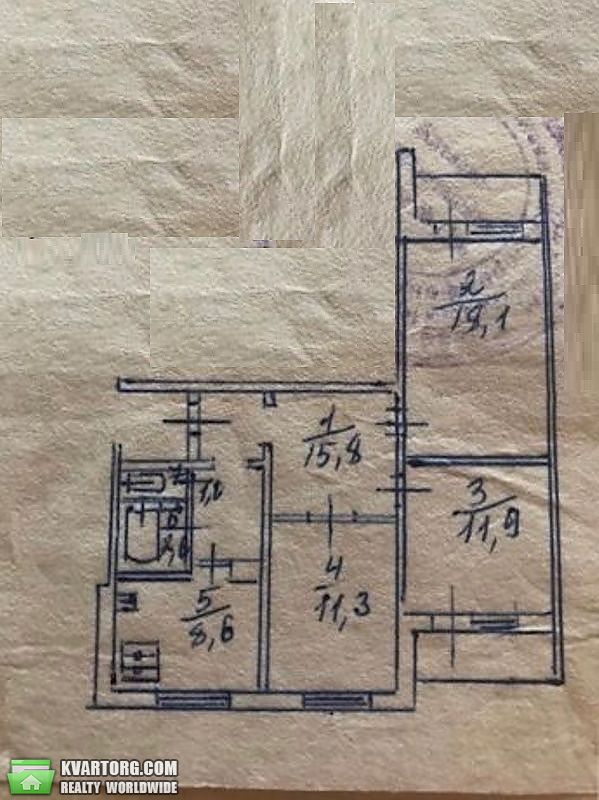 2
19,1
1
15,8
3
11,9
4
11,3
5
8,6
6
7
KVARTORG.COM
REALTY WORLDWIDE